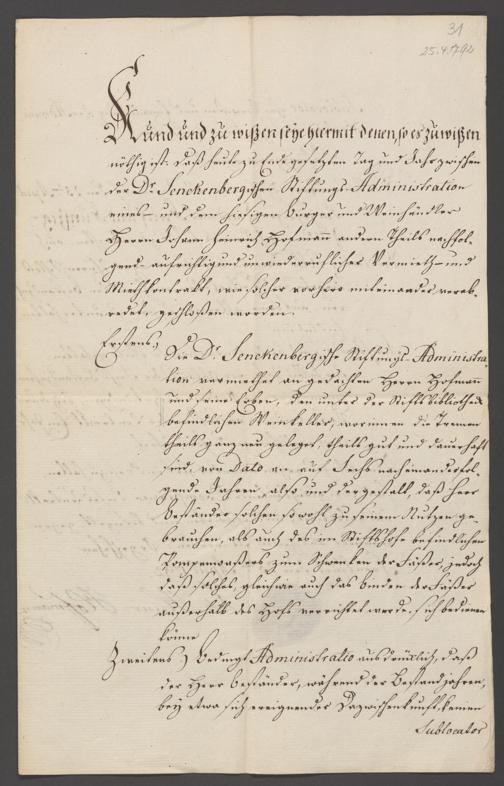 31
25.4.1792
Kund und zu wißen seye hiermit denen, so es zu wißen
nöthig ist. Daß heute zu Ende gesetzten Tag und Jahr zwischen
der Dr. Senckenbergischen Stiftungs-Administration
eines- und dem hiesigen Burger und Weinhändler
Herrn Johann Heinrich Hofmann andern Theils nachfol-
gend aufrichtig und unwiederruflicher Vermieth- und
Miethkontrakt, wie solcher vorhero miteinander verab-
redet, geschloßen worden.
Erstens,
Die Dr. Senckenbergische Stiftungs-Administra-
tion vermiethet an gedachten Herrn Hofmann
und seine Erben, den unter der Stifts Bibliothek
befindlichen Weinkeller, worinnen die Tremen
theils ganz neu geleget, theils gut und dauerhaft
sind, von Dato an auf Sechs nacheinanderfol-
gende Jahren, also und dergestalt, daß Herr
Beständer solchen sowohl zu seinem Nutzen ge-
brauchen, als auch des im Stiftshofe befindlichen
Pompenwaßers zum Schwenken der Fäßer, jedoch
daß solches, gleichwie auch das binden der Fäßer
außerhalb des Hofs verrichtet werde, sich bedienen
könne
Zweitens) Bedingt Administratio ausdrücklich, daß
der Herr Beständer, während der Bestandjahren,
bey etwa sich ereignender Dazwischenkunft, keinen
Sublocator